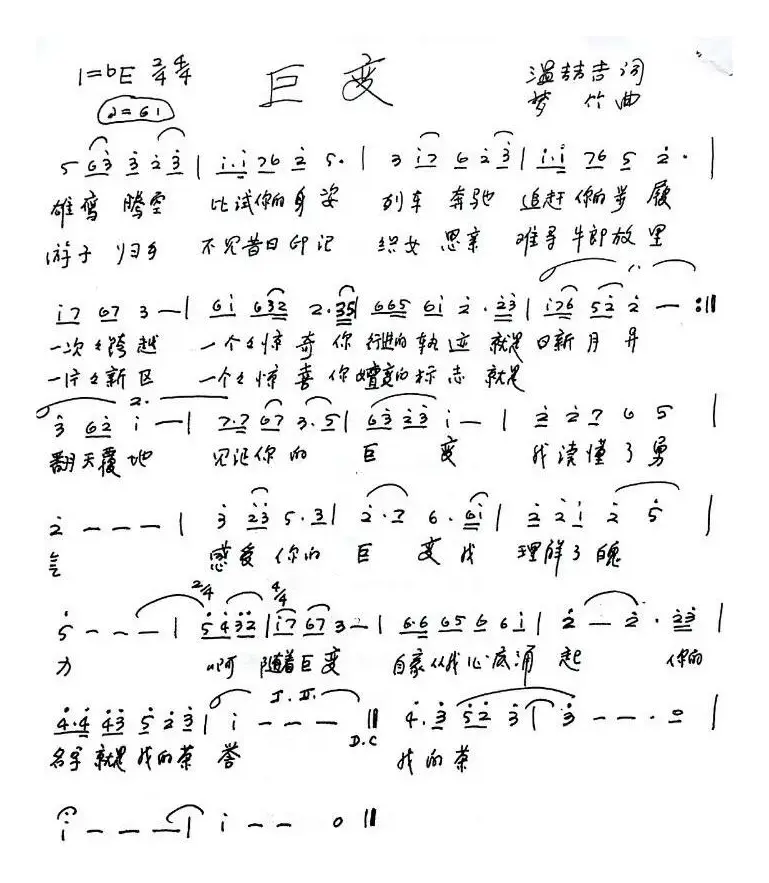 1=bE 2/4 4/4 巨变 温喆吉词
♩=61 梦竹曲
5 6̣3̇ 3̇ 2̇3̇ | i·i 76 2̇ 5· | 3 i7 6 2̇3̇ | i·i 76 5 2̇· |
雄鹰 腾空 比试你的身姿 列车 奔驰 追赶你的步履
游子 归乡 不见昔日印记 织女 思亲 难寻牛郎故里
i7 67 3 — | 6i 632 2·35 | 665 6i 2̇·2̇3̇ | i76 52̇ 2̇ — :||
一次々跨越 一个々惊奇 你行进的轨迹 就是日新月异
一片々新区 一个々惊喜 你嬗变的标志 就是
2.
3̇ 62̇ i — | 7·7 67 3·5 | 63̇ 2̇3̇ i — | 2̇ 2̇7 6 5 |
翻天覆地 见证你的 巨 变 我读懂了勇
2̇ - - - | 3̇ 2̇3̇ 5·3 | 2̇·7 6·6i | 2̇ 2̇i 2̇ 5̇ |
气 感受你的 巨 变我 理解了魄
2/4 4/4
5̇ - - - | 5̇4̇3̇2̇ | i7 67 3 — | 6·6 65 6 6i | 2̇ — 2̇·2̇3̇ |
力 啊 随着巨变 自豪从我心底涌 起 你的
I. II.
4̇·4̇ 4̇3̇ 5̇ 2̇3̇ | i - - - || 4̇·3̇ 5̇2̇ 3̇ | 3̇ - - - · 0 |
D.C
名字就是我的荣 誉 我的荣
i - - - | i - - 0 ||